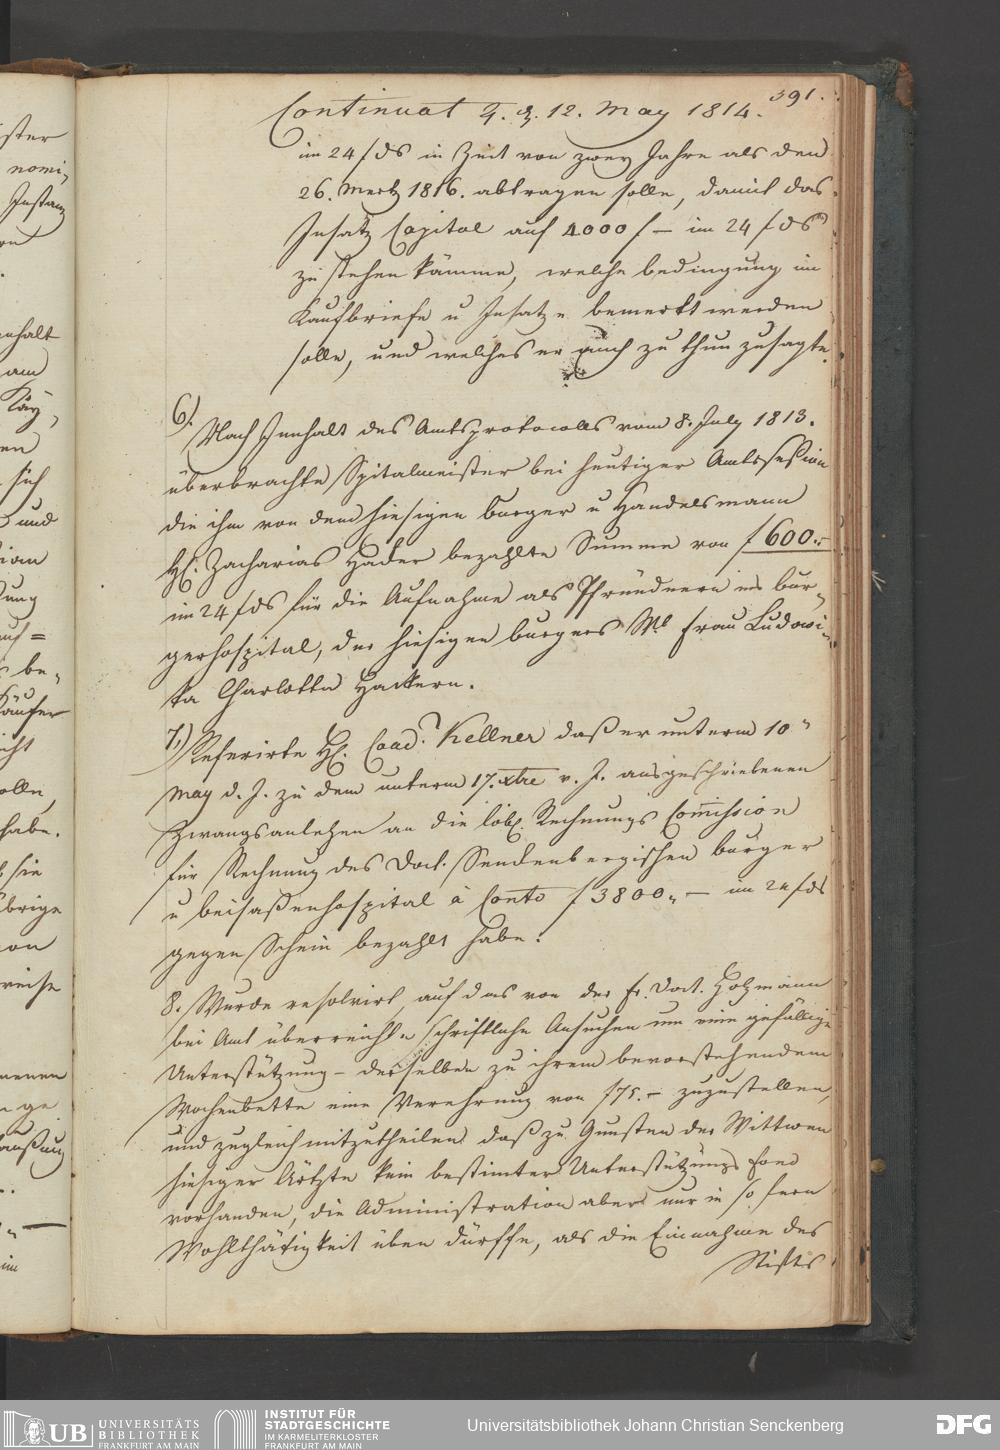 391.
Continuat d. d. 12. May 1814.
im 24 f ds in Zeit von zwey Jahre als den
26. Mertz 1816. abtragen solle, damit das
Insatz Capital auf 4000 f — im 24 f ds
zu stehen kämme, welche bedingung im
Kaufbriefe u Insatze bemerkt werden
solle, und welches er auch zu thun zusagte.
6). Nach Innhalt des Amtsprotocolls vom 8. July 1813.
überbrachte Spitalmeister bei heutiger Amtssession
die ihm von dem hiesigen burger u Handelsmann
H. Zacharias Hader bezahlte Summe von f 600.-
im 24 f ds für die Aufnahme als Pfründnerin ins bur-
gerhospital, der hiesigen burgers Frau Ludowi-
ka Charlotta Hackern.
7.) Referirte H. Cand. Kellner daß er unterm 10
May d. J. zu dem unterm 17. xbre v. J. ausgeschriebenen
Zwangsanlehen an die löbl. Rechnungs Commission
für Rechnung des Doct. Senckenbergischen burger
u beisaßenhospital à Conto f 3800,, — im 24 f ds
gegen Schein bezahlt habe.
8. Wurde resolvirt, auf das von der Fr. Doct. Holzmann
bei Amt überreichte schriftliche Ansuchen um eine gefällige
Unterstützung – derselben zu ihrem bevorstehendem
Wochenbette eine Verehrung von f 75.– zuzustellen,
und zugleich mitzutheilen daß zu Gunsten der Wittwen
hiesiger Ärtzte kein bestimter Unterstützungs Fond
vorhanden, die Administration aber nur in so fern
Wohlthätigkeit üben dürffe, als die Einnahme des
Stifts
UB UNIVERSITÄTS
BIBLIOTHEK
FRANKFURT AM MAIN
INSTITUT FÜR
STADTGESCHICHTE
IM KARMELITERKLOSTER
FRANKFURT AM MAIN
Universitätsbibliothek Johann Christian Senckenberg
DFG